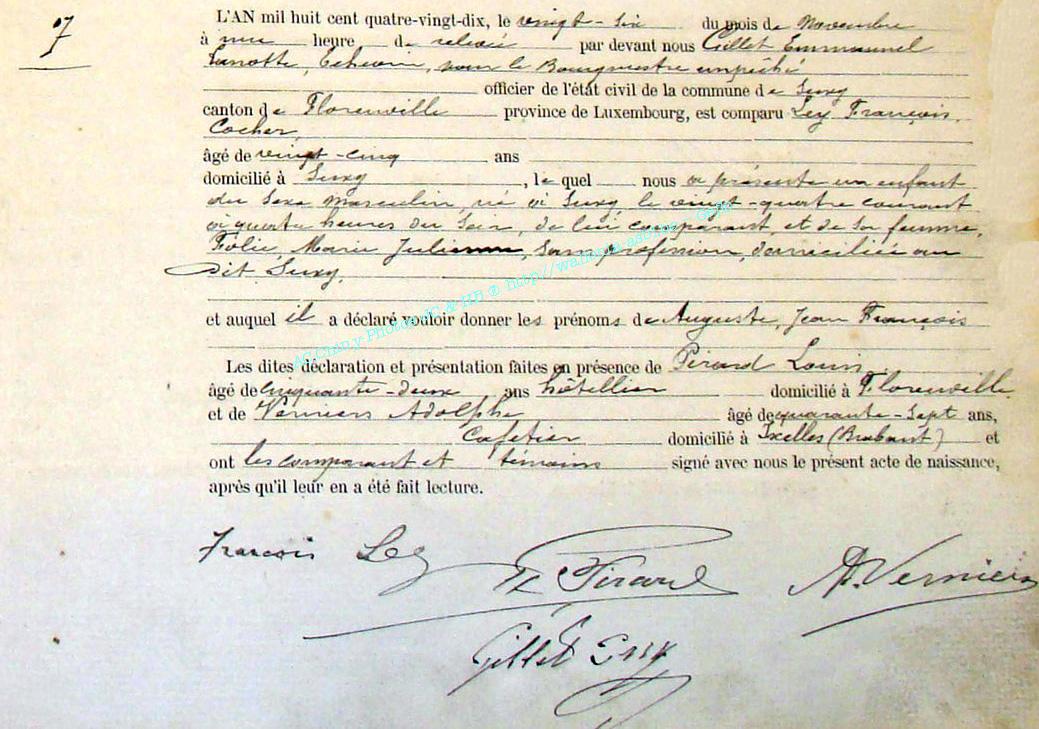 7
L'AN mil huit cent quatre-vingt-dix, le vingt-six du mois de Novembre
à une heure de relevée par devant nous Gillet Emmanuel
Echevin, pour le Bourgmestre empêché
officier de l'état civil de la commune de Suxy
canton de Florenville province de Luxembourg, est comparu Ley François,
Cocher,
âgé de vingt-cinq ans
domicilié à Suxy, le quel nous a présenté un enfant
du Sexe Masculin, né à Suxy le vingt-quatre courant
à quatre heures du Soir, de lui comparant, et de Son femme,
Folie, Marie Julienne, Sans profession, domiciliée au
dit Suxy.
et auquel il a déclaré vouloir donner les prénoms de Auguste, Jean François
Les dites déclaration et présentation faites en présence de Pirard Louis
âgé de Cinquante-deux ans hôtellier domicilié à Florenville
et de Verniers Adolphe âgé de quarante-Sept ans,
Cafetier domicilié à Ixelles (Brabant) et
ont les comparant et témoins signé avec nous le présent acte de naissance,
après qu'il leur en a été fait lecture.
François Ley Pirard Ad. Verniers
Gillet